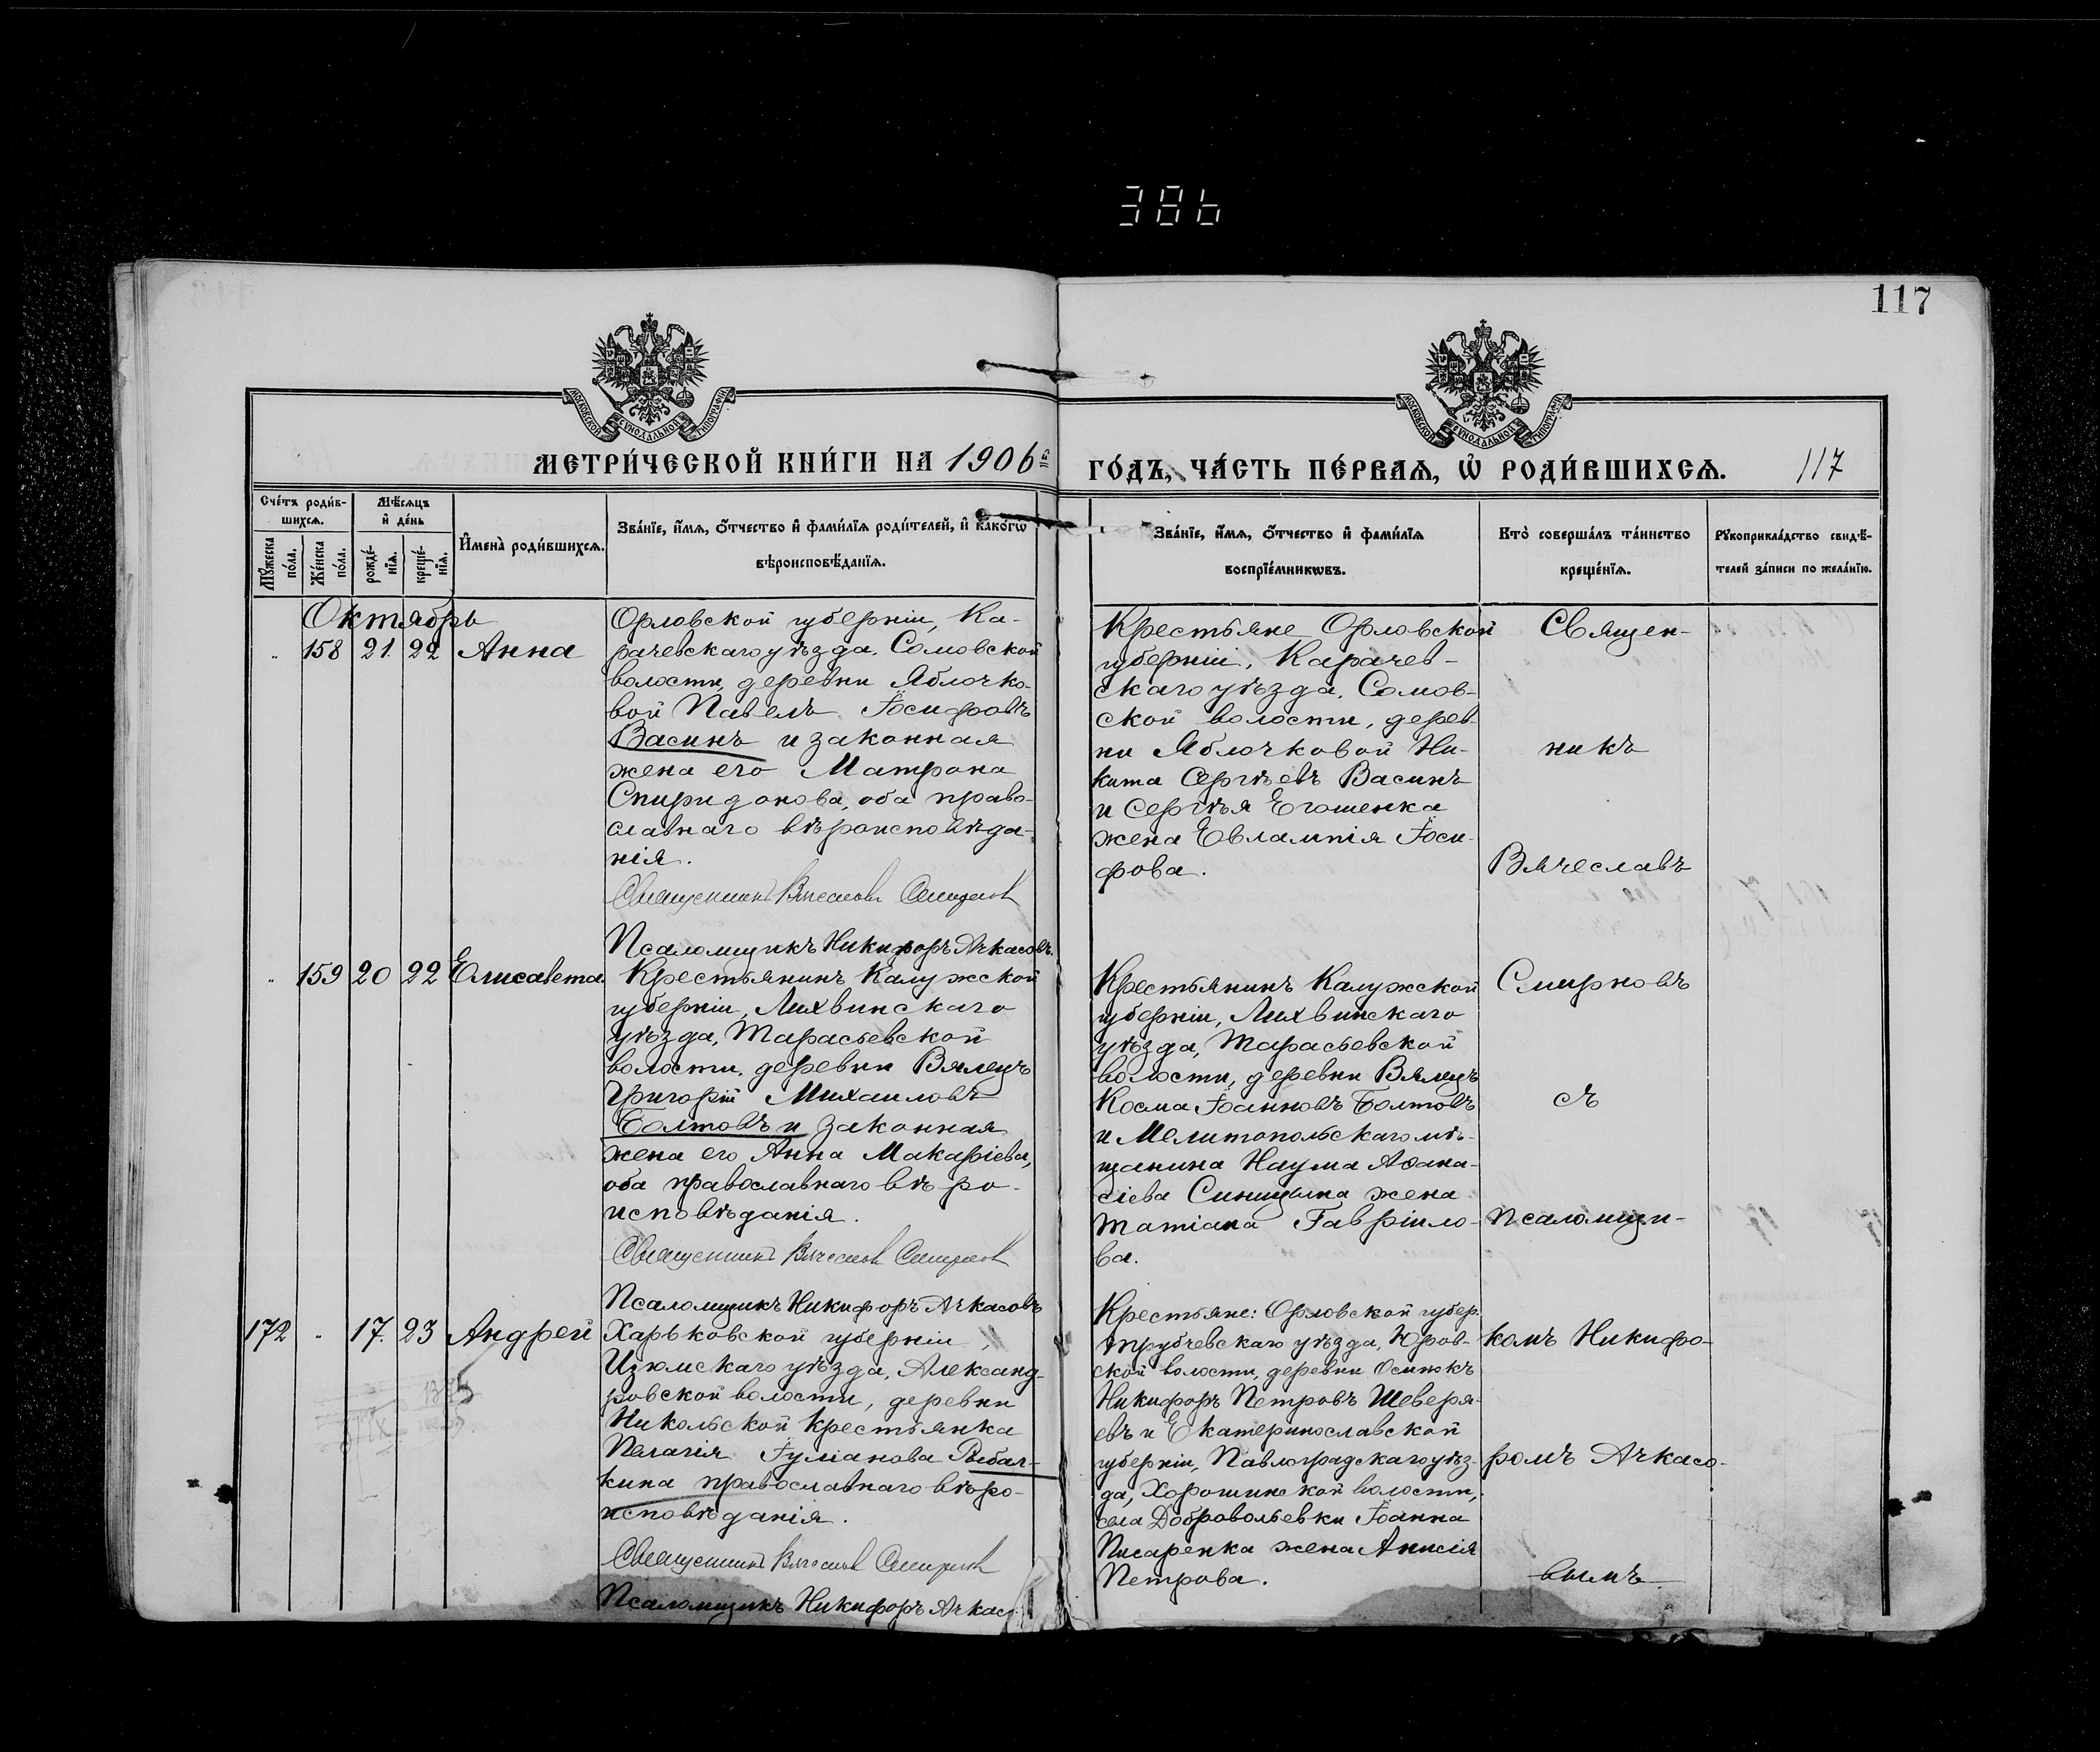 386
117
МОСКОВСКОЙ СѴНОДАЛЬНОЙ ТИПОГРАФІИ
МОСКОВСКОЙ СѴНОДАЛЬНОЙ ТИПОГРАФІИ
МЕТРИ́ЧЕСКОЙ КНИ́ГИ НА 1906й
ГО́ДЪ, ЧА́СТЬ ПЕ́РВАѦ, Ѡ҆ РОДИ́ВШИХСѦ. 117
Сче́тъ роди́в-
шихсѧ.
Мѹ́жеска по́ла.
Же́нска по́ла.
Мѣ́сѧцъ
и҆ де́нь
рожде́-
нїѧ.
креще́-
нїѧ.
И҆мена̀ роди́вшихсѧ.
Зва́нїе, и҆́мѧ, ѻ҆́тчество и҆ фами́лїѧ роди́телей, и҆ како́гѡ
вѣроисповѣ́данїѧ.
Зва́нїе, и҆́мѧ, ѻ҆́тчество и҆ фами́лїѧ
воспрїе́мникѡвъ.
Кто̀ соверша́лъ та́инство
креще́нїѧ.
Рѹкоприкла́дство свидѣ́-
телей за́писи по жела́нїю.
Октябрь
„ 158 21. 22 Анна
Орловской губерніи, Ка-
рачевскаго уѣзда. Сомовской
волости, деревни Яблочко-
вой Павелъ Іосифовъ
Васинъ и законная
жена его Матрона
Спиридонова, оба право-
славнаго вѣроисповѣда-
нія.
Священникъ Вячеславъ Смирновъ
Псаломщикъ Никифоръ Ачкасовъ.
Крестьяне Орловской
губерніи, Карачев-
скаго уѣзда, Сомов-
ской волости, дерев-
ни Яблочковой Ни-
кита Сергѣевъ Васинъ
и Сергѣя Егошенка
жена Евлампія Іоси-
фова.
Священ-
никъ
Вячеславъ
„ 159 20 22 Елисавета.
Крестьянинъ Калужской
губерніи, Лихвинскаго
уѣзда, Тарасьевской
волости, деревни Вялецъ
Григорій Михаиловъ
Болтовъ и законная
жена его Анна Макаріева,
оба православнаго вѣро-
исповѣданія.
Священникъ Вячеславъ Смирновъ
Псаломщикъ Никифоръ Ачкасовъ
Крестьянинъ Калужской
губерніи, Лихвинскаго
уѣзда, Тарасьевской
волости, деревни Вялецъ
Косма Іоанновъ Болтовъ
и Мелитопольскаго мѣ-
щанина Наума Аѳана-
сіева Синицына жена
Татіана Гавріило-
ва.
Смирновъ
съ
Псаломщи-
172 „ 17. 23 Андрей
Харьковской губерніи,
Изюмскаго уѣзда, Александ-
ровской волости, деревни
Никольской крестьянка
Пелагія Іуліанова Рыбал-
кина православнаго вѣро-
исповѣданія.
Священникъ Вячеславъ Смирновъ
Псаломщикъ Никифоръ Ачкас
Крестьяне: Орловской губер.
Трубчевскаго уѣзда, Юров-
ской волости, деревни Осинокъ
Никифоръ Петровъ Шеверя-
евъ и Екатеринославской
губерніи, Павлоградскаго уѣз-
да, Хорошинской волости,
села Добровольевки Іоанна
Писаренка жена Анисія
Петрова.
комъ Никифо-
ромъ Ачкасо-
вымъ.